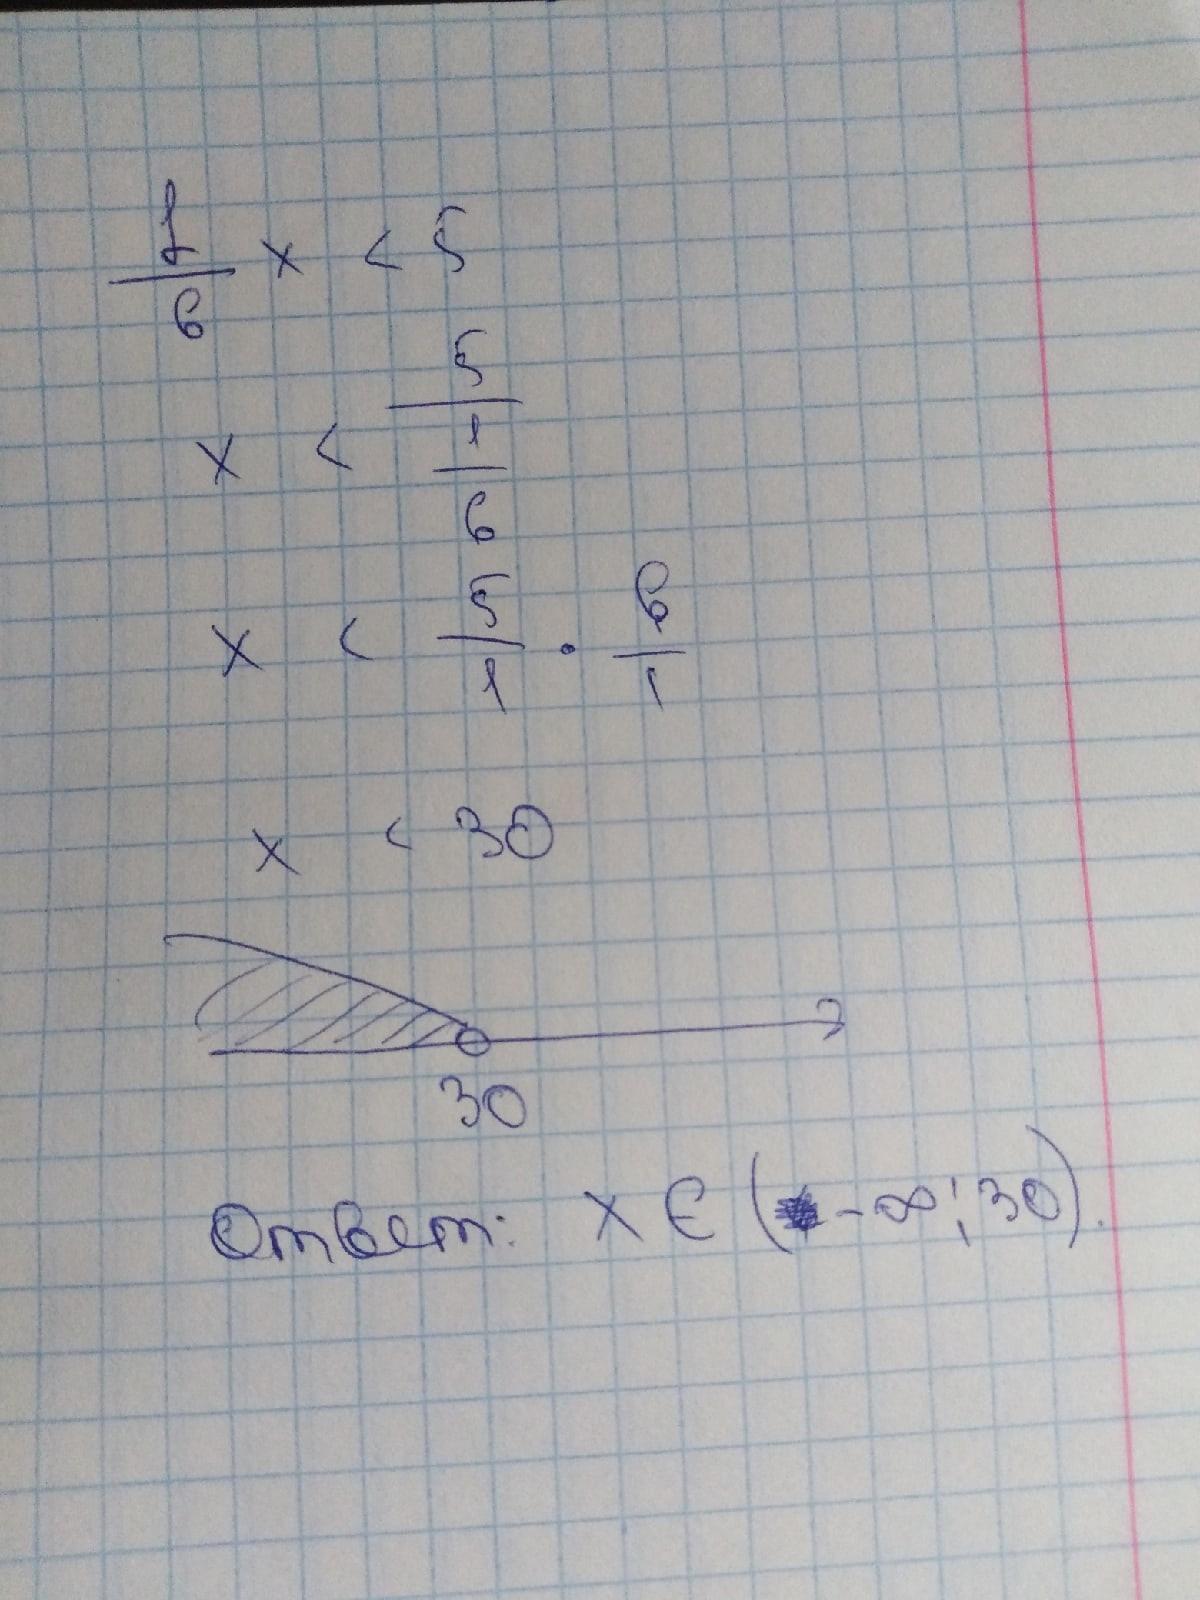 1/6 x < 5
x < 5/(1/6)
x < 5/1 · 6/1
x < 30
30
Ответ: x ∈ (-∞; 30).